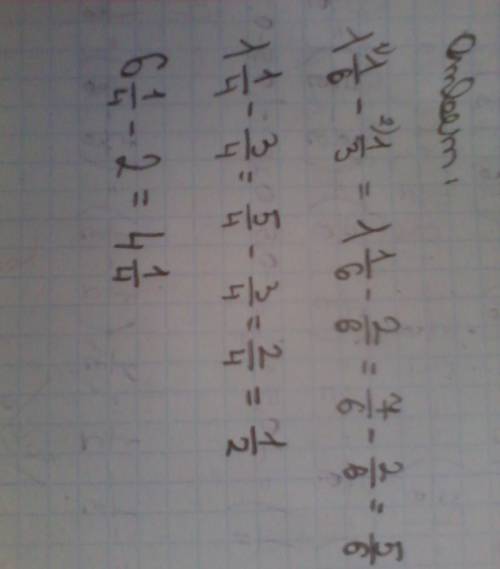 Ответ:
1 1/6 - 1/3 = 1 1/6 - 2/6 = 7/6 - 2/6 = 5/6
1 1/4 - 3/4 = 5/4 - 3/4 = 2/4 = 1/2
6 1/4 - 2 = 4 1/4